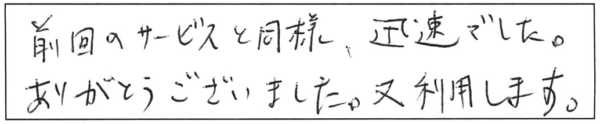 前回のサービスと同様、迅速でした。
ありがとうございました。又利用します。